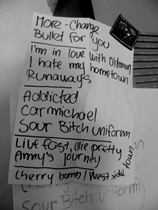 More-Change
Bullet for you
I'm in love with Oldman
I hate my hometown
Runaways
Addicted
Carmichael
Sour Bitch uniform
Live fast, die pretty
Ammy's journey
Cherry bomb / West side town
Sour Bitch uniform